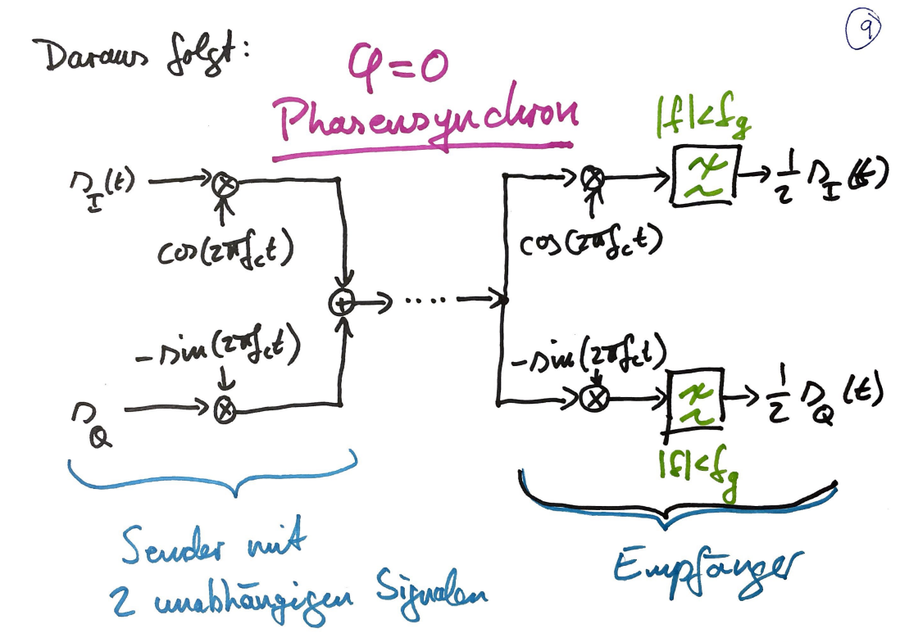 9
Daraus folgt:
φ=0
Phasensynchron
|f|<f_g
s_I(t)
cos(2πf_ct)
cos(2πf_ct)
1/2 s_I(t)
+ ....
-sin(2πf_ct)
-sin(2πf_ct)
s_Q
1/2 s_Q(t)
|f|<f_g
Sender mit
2 unabhängigen Signalen
Empfänger